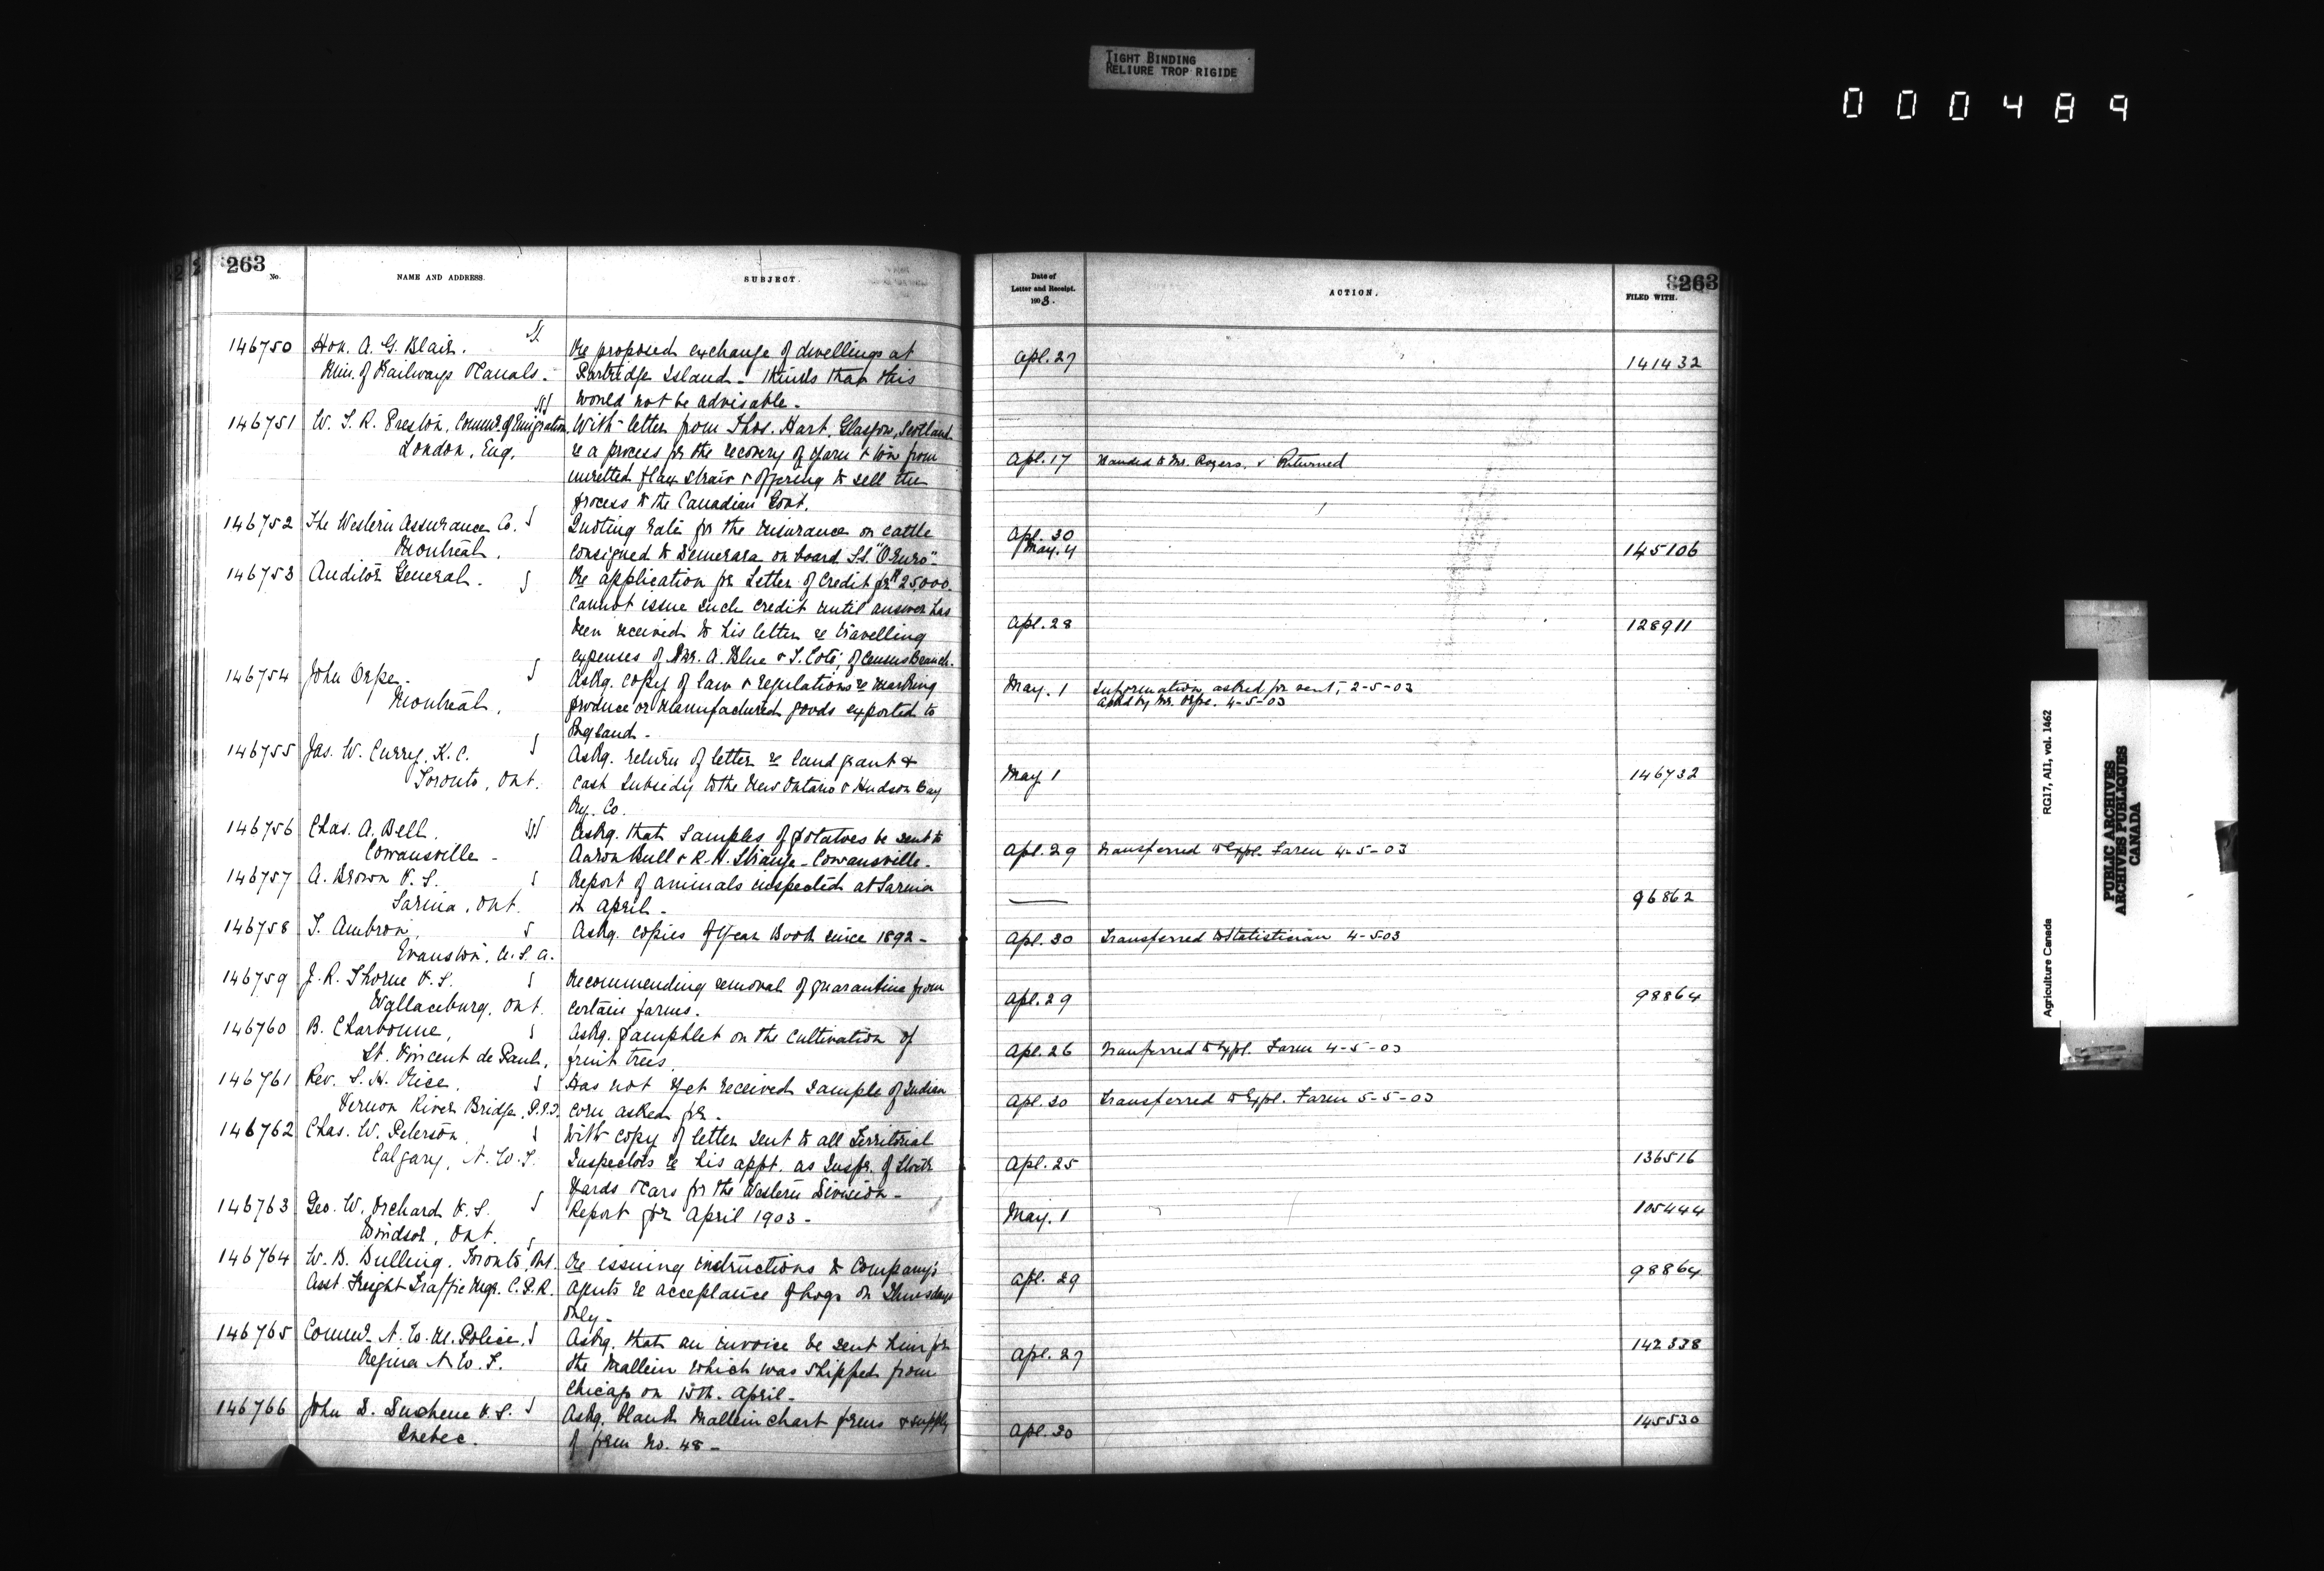 TIGHT BINDING
RELIURE TROP RIGIDE
000489
263
No.
NAME AND ADDRESS.
SUBJECT.
146750 Hon. A. G. Blair. Re proposed exchange of dwellings at
Min. of Railways & Canals. Partridge Island - thinks that this
would not be advisable -
146751 W. T. R. Preston, Commr. of Emigration, With letter from Thos. Hart, Glasgow, Scotland
London, Eng. re a process for the recovery of yarn & tow from
unretted flax straw & offering to sell the
process to the Canadian Govt.
146752 The Western Assurance Co. Quoting rate for the insurance on cattle
Montreal. consigned to Demerara on board S.S. "Oruro"-
146753 Auditor General. Re application for Letter of Credit for $25,000.
Cannot issue such credit until answer has
been received to his letter re travelling
expenses of Mr. A. Blue & T. Coté, of Census Branch.
146754 John Orpe. Askg. copy of law & regulations re marking
Montreal. produce or manufactured goods exported to
England -
146755 Jas. W. Curry, K.C. Askg. return of letter re land grant &
Toronto, Ont. cash subsidy to the New Ontario & Hudson Bay
Ry. Co.
146756 Chas. A. Bell. Askg. that samples of potatoes be sent to
Cowansville - Aaron Bull & R. H. Strange - Cowansville -
146757 A. Brown V.S. Report of animals inspected at Sarnia
Sarnia, Ont. in April -
146758 T. Ambron, Askg. copies of Year Book since 1892 -
Evanston, U.S.A.
146759 J. R. Thorne V.S. Recommending removal of quarantine from
Wallaceburg, Ont. certain farms.
146760 B. Charbonne, Askg. pamphlet on the cultivation of
St. Vincent de Paul, fruit trees.
146761 Rev. S. H. Rice. Has not yet received sample of Indian
Vernon River Bridge, P.E.I. corn asked for -
146762 Chas. W. Peterson, With copy of letter sent to all Territorial
Calgary, N.W.T. Inspectors re his appt. as Inspr. of Stock
Yards & Cars for the Western Division -
146763 Geo. W. Orchard V.S. Report for April 1903 -
Windsor, Ont.
146764 W. B. Bulling, Toronto, Ont. Re issuing instructions to Company's
Asst. Freight Traffic Mgr. C.P.R. agents re acceptance of hogs on Thursdays
only -
146765 Commr. N.W.M. Police, Askg. that an invoice be sent him for
Regina N.W.T. the Mallein which was shipped from
Chicago on 15th. April -
146766 John D. Duchene V.S. Askg. blank Mallein chart forms & supply
Quebec. of form No. 48 -
Date of
Letter and Receipt.
1903.
ACTION.
263
FILED WITH.
Apl. 27 141432
Apl. 17 Handed to Mr. Rogers. & Returned
Apl. 30
May. 4 145106
Apl. 28 128911
May. 1 Information asked for sent, 2-5-03
Askd by Mr. Orpe. 4-5-03
May 1 146732
Apl. 29 Transferred to Expl. Farm 4-5-03
— 96862
Apl. 30 Transferred to Statistician 4-5-03
Apl. 29 98864
Apl. 26 Transferred to Expl. Farm 4-5-03
Apl. 30 Transferred to Expl. Farm 5-5-03
Apl. 25 136516
May. 1 105444
Apl. 29 98864
Apl. 27 142338
Apl. 30 145530
Agriculture Canada RG17, AII, vol. 1462
PUBLIC ARCHIVES
ARCHIVES PUBLIQUES
CANADA